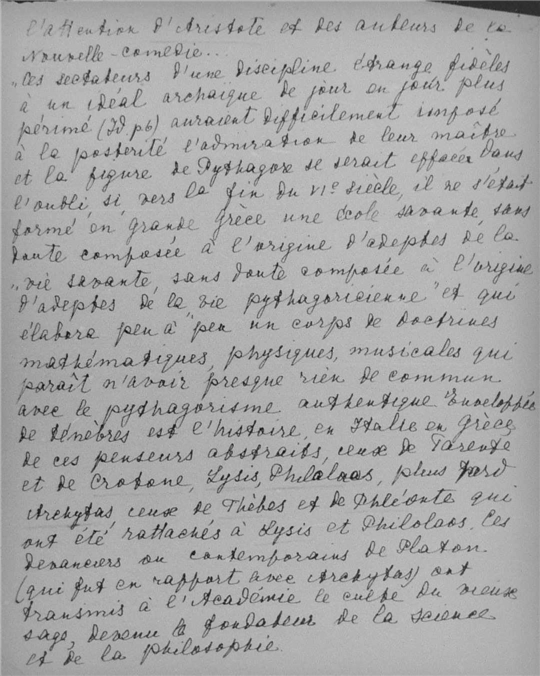 l'attention d'Aristote et des auteurs de la
Nouvelle-comedie...
„Ces sectateurs d'une discipline étrange fidèles
à un idéal archaique de jour en jour plus
périmé (Id. p6) auraient difficilement imposé
à la postérité l'admiration de leur maître
et la figure de Pythagore se serait effacée dans
l'oubli si vers la fin du VIe siècle, il ne s'était
formé en grande Grèce une école savante, sans
doute composée à l'origine d'adeptes de la
„vie savante, sans doute composée à l'origine
d'adeptes de la vie pythagoricienne" et qui
élabora peu à peu un corps de doctrines
mathématiques, physiques, musicales qui
paraît n'avoir presque rien de commun
avec le pythagorisme authentique Enveloppée
de ténèbres est l'histoire, en Italie en Grèce
de ces penseurs abstraits, ceux de Tarente
et de Crotone, Lysis, Philolaos, plus tard
Archytas ceux de Thèbes et de Phléonte qui
ont été rattachés à Lysis et Philolaos. Ces
devanciers ou contemporains de Platon
(qui fut en rapport avec Archytas) ont
transmis à l'Académie le culte du vieux
sage, devenu le fondateur de la science
et de la philosophie.